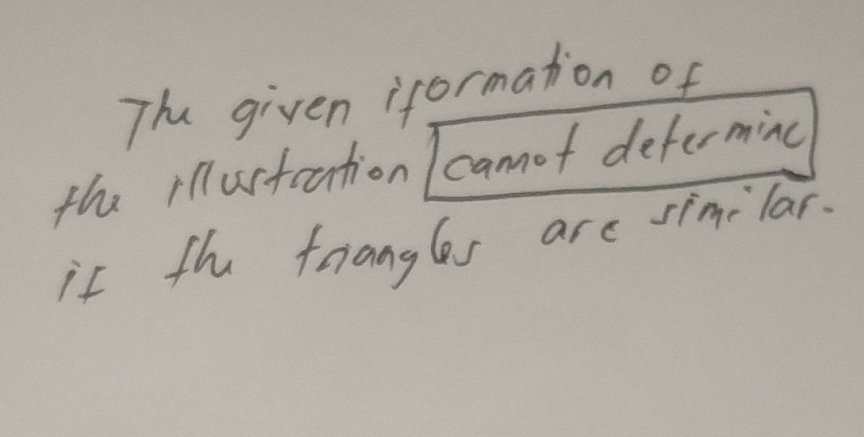 The given iformation of
the illustration cannot determine
if the triangles are similar.